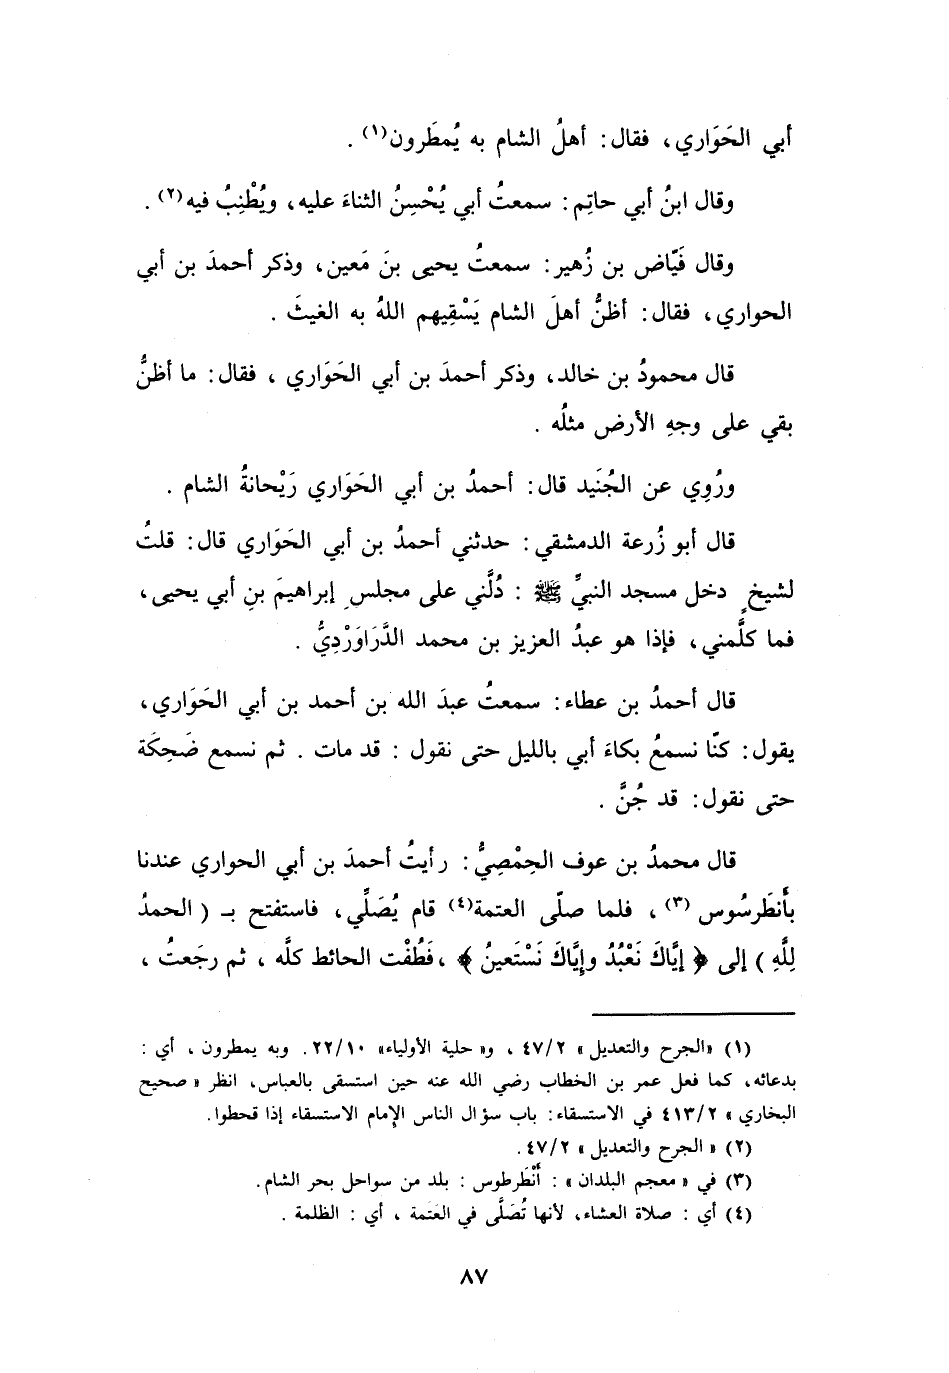 أبي الحَوَاري، فقال: أهلُ الشام به يُمطَرون(١) .
وقال ابنُ أبي حاتِم: سمعتُ أبي يُحْسِنُ الثناءَ عليه، ويُطْنِبُ فيه(٢) .
وقال فَيّاض بن زُهير: سمعتُ يحيى بنَ مَعين، وذكر أحمدَ بن أبي
الحواري، فقال: أظنُّ أهلَ الشام يَسْقِيهم اللهُ به الغيثَ .
قال محمودُ بن خالد، وذكر أحمدَ بن أبي الحَوَاري ، فقال: ما أظنُّ
بقي على وجهِ الأرض مثلُه .
ورُوِي عن الجُنَيد قال: أحمدُ بن أبي الحَوَاري رَيْحانةُ الشام .
قال أبو زُرعة الدمشقي: حدثني أحمدُ بن أبي الحَوَاري قال: قلتُ
لشيخٍ دخل مسجد النبيِّ ﷺ : دُلَّني على مجلسِ إبراهيمَ بنِ أبي يحيى،
فما كلَّمني، فإذا هو عبدُ العزيز بن محمد الدَّرَاوَرْدِيُّ .
قال أحمدُ بن عطاء: سمعتُ عبدَ الله بن أحمد بن أبي الحَوَاري،
يقول: كنّا نسمعُ بكاءَ أبي بالليل حتى نقول : قد مات . ثم نسمع ضَحِكَة
حتى نقول: قد جُنَّ .
قال محمدُ بن عوف الحِمْصِيُّ: رأيتُ أحمدَ بن أبي الحواري عندنا
بأَنطَرسُوس (٣) ، فلما صلّى العتمة(٤) قام يُصَلِّي، فاستفتح بـ ( الحمدُ
لِلَّهِ ) إلى ﴿ إيَّاكَ نَعْبُدُ وإيَّاكَ نَسْتَعينُ ﴾ ،فَطُفْت الحائط كلَّه ، ثم رجَعتُ ،
(١) «الجرح والتعديل» ٤٧/٢ ، و« حلية الأولياء» ٢٢/١٠. وبه يمطرون ، أي :
بدعائه، كما فعل عمر بن الخطاب رضي الله عنه حين استسقى بالعباس، انظر « صحيح
البخاري » ٤١٣/٢ في الاستسقاء: باب سؤال الناس الإمام الاستسقاء إذا قحطوا.
(٢) « الجرح والتعديل » ٤٧/٢.
(٣) في « معجم البلدان » : أَنْطَرطوس : بلد من سواحل بحر الشام.
(٤) أي : صلاة العشاء، لأنها تُصَلَّى في العَتمة ، أي : الظلمة .
٨٧